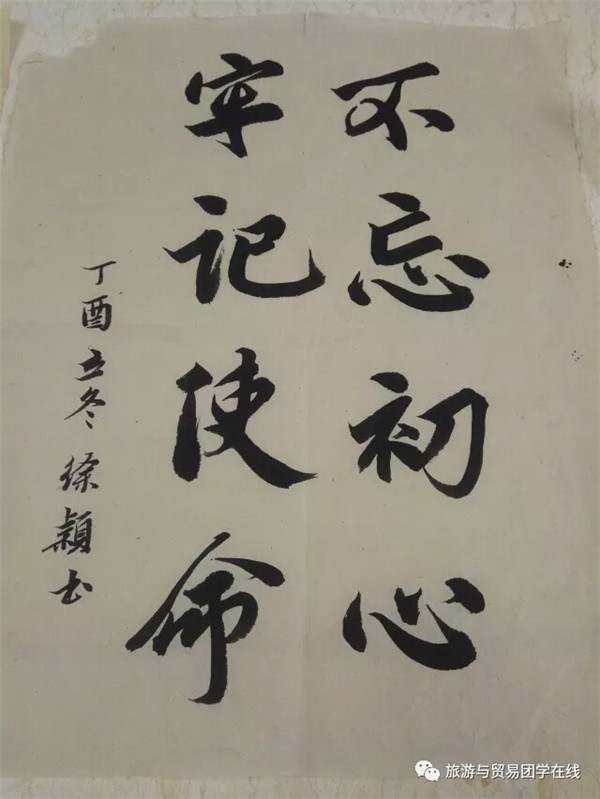 不忘初心
牢记使命
丁酉立冬徐颖书
旅游与贸易团学在线